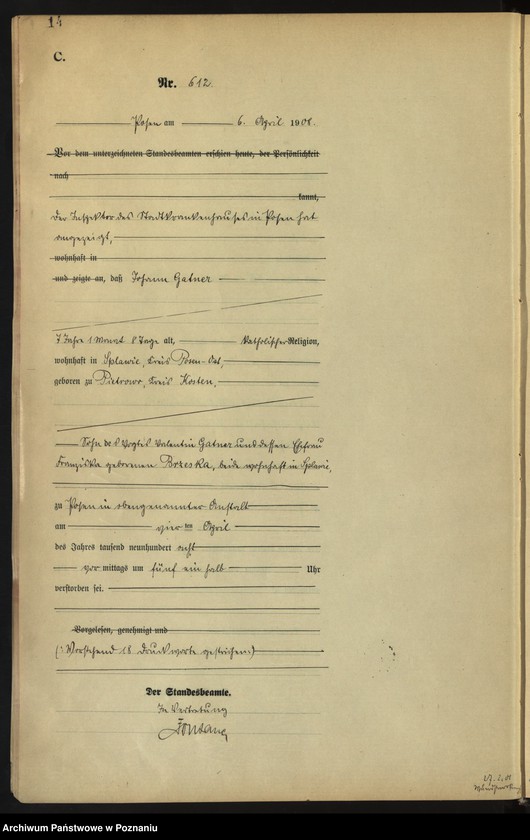 14
C.
Nr. 612.
Posen am 6. April 1908.
Vor dem unterzeichneten Standesbeamten erschien heute, der Persönlichkeit
nach
kannt,
Der Inspektor des Stadtkrankenhauses in Posen hat
angezeigt,
wohnhaft in
und zeigte an, daß Johann Gatner
7 Jahre 1 Monat 8 Tage alt, katholischer Religion,
wohnhaft in Splawie, Kreis Posen-Ost,
geboren zu Pietrowo, Kreis Kosten,
Sohn des Vogtes Valentin Gatner und dessen Ehefrau
Franziska geborenen Brzeska, beide wohnhaft in Splawie,
zu Posen in obengenannter Anstalt
am vier ten April
des Jahres tausend neunhundert acht
vor mittags um fünf ein halb Uhr
verstorben sei.
Vorgelesen, genehmigt und
(: Vorstehend 18 Druckworte gestrichen :)
Der Standesbeamte.
In Vertretung
Archiwum Państwowe w Poznaniu